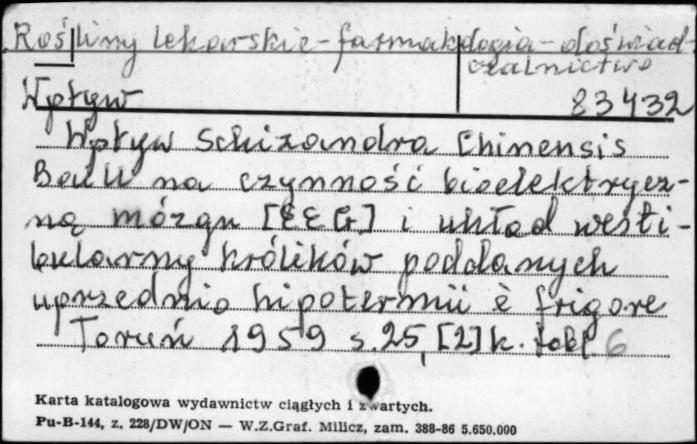 Rośliny lekarskie - farmakologia - doświad-
czalnictwo
Wpływ
83432
Wpływ Schizandra Chinensis
Baill na czynność bioelektrycz-
ną mózgu [EEG] i układ westi-
bularny królików poddanych
uprzednio hipotermii è frigore
Toruń 1959 s. 25, [2] k. tabl. 6
Karta katalogowa wydawnictw ciągłych i zwartych.
Pu-B-144, z. 228/DW/ON — W.Z.Graf. Milicz, zam. 388-86 5.650.000